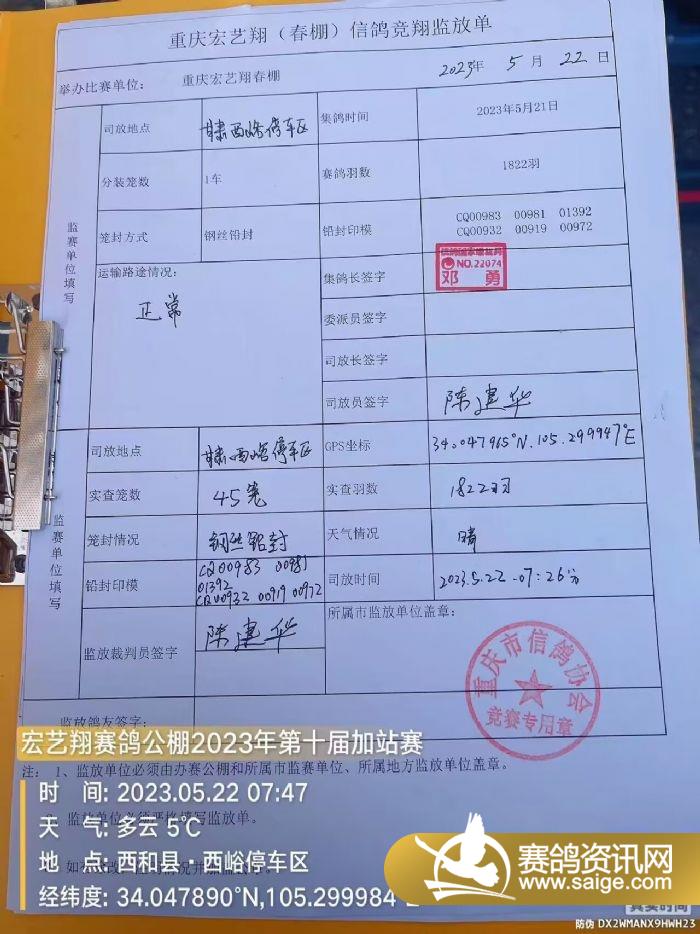 重庆宏艺翔（春棚）信鸽竞翔监放单
举办比赛单位: 重庆宏艺翔春棚 2023年 5 月 22 日
监赛单位填写
司放地点 甘肃西峪停车区 集鸽时间 2023年5月21日
分装笼数 1车 赛鸽羽数 1822羽
笼封方式 钢丝铅封 铅封印模 CQ00983 00981 01392
CQ00932 00919 00972
运输路途情况: 正常
集鸽长签字 NO.22074
邓 勇
委派员签字
司放长签字
司放员签字 陈建华
监赛单位填写
司放地点 甘肃西峪停车区 GPS坐标 34.047965°N.105.299947°E
实查笼数 45笼 实查羽数 1822羽
笼封情况 钢丝铅封 天气情况 晴
铅封印模 CQ00983 00981
01392
CQ00932 00919 00972
司放时间 2023.5.22-07:26分
监放裁判员签字 陈建华
所属市监放单位盖章:
重庆市信鸽协会
竞赛专用章
监放鸽友签字:
宏艺翔赛鸽公棚2023年第十届加站赛
注: 1、监放单位必须由办赛公棚和所属市监赛单位、所属地方监放单位盖章。
时 间: 2023.05.22 07:47
天 气: 多云 5℃
地 点: 西和县·西峪停车区
经纬度: 34.047890°N,105.299984°E
赛鸽资讯网
www.saige.com
真实时间
防伪 DX2WMANX9HWH23